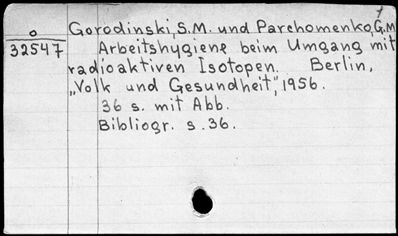 o
32547
Gorodinski, S.M. und Parchomenko, G.M.
Arbeitshygiene beim Umgang mit
radioaktiven Isotopen. Berlin,
„Volk und Gesundheit", 1956.
36 s. mit Abb.
Bibliogr. s. 36.